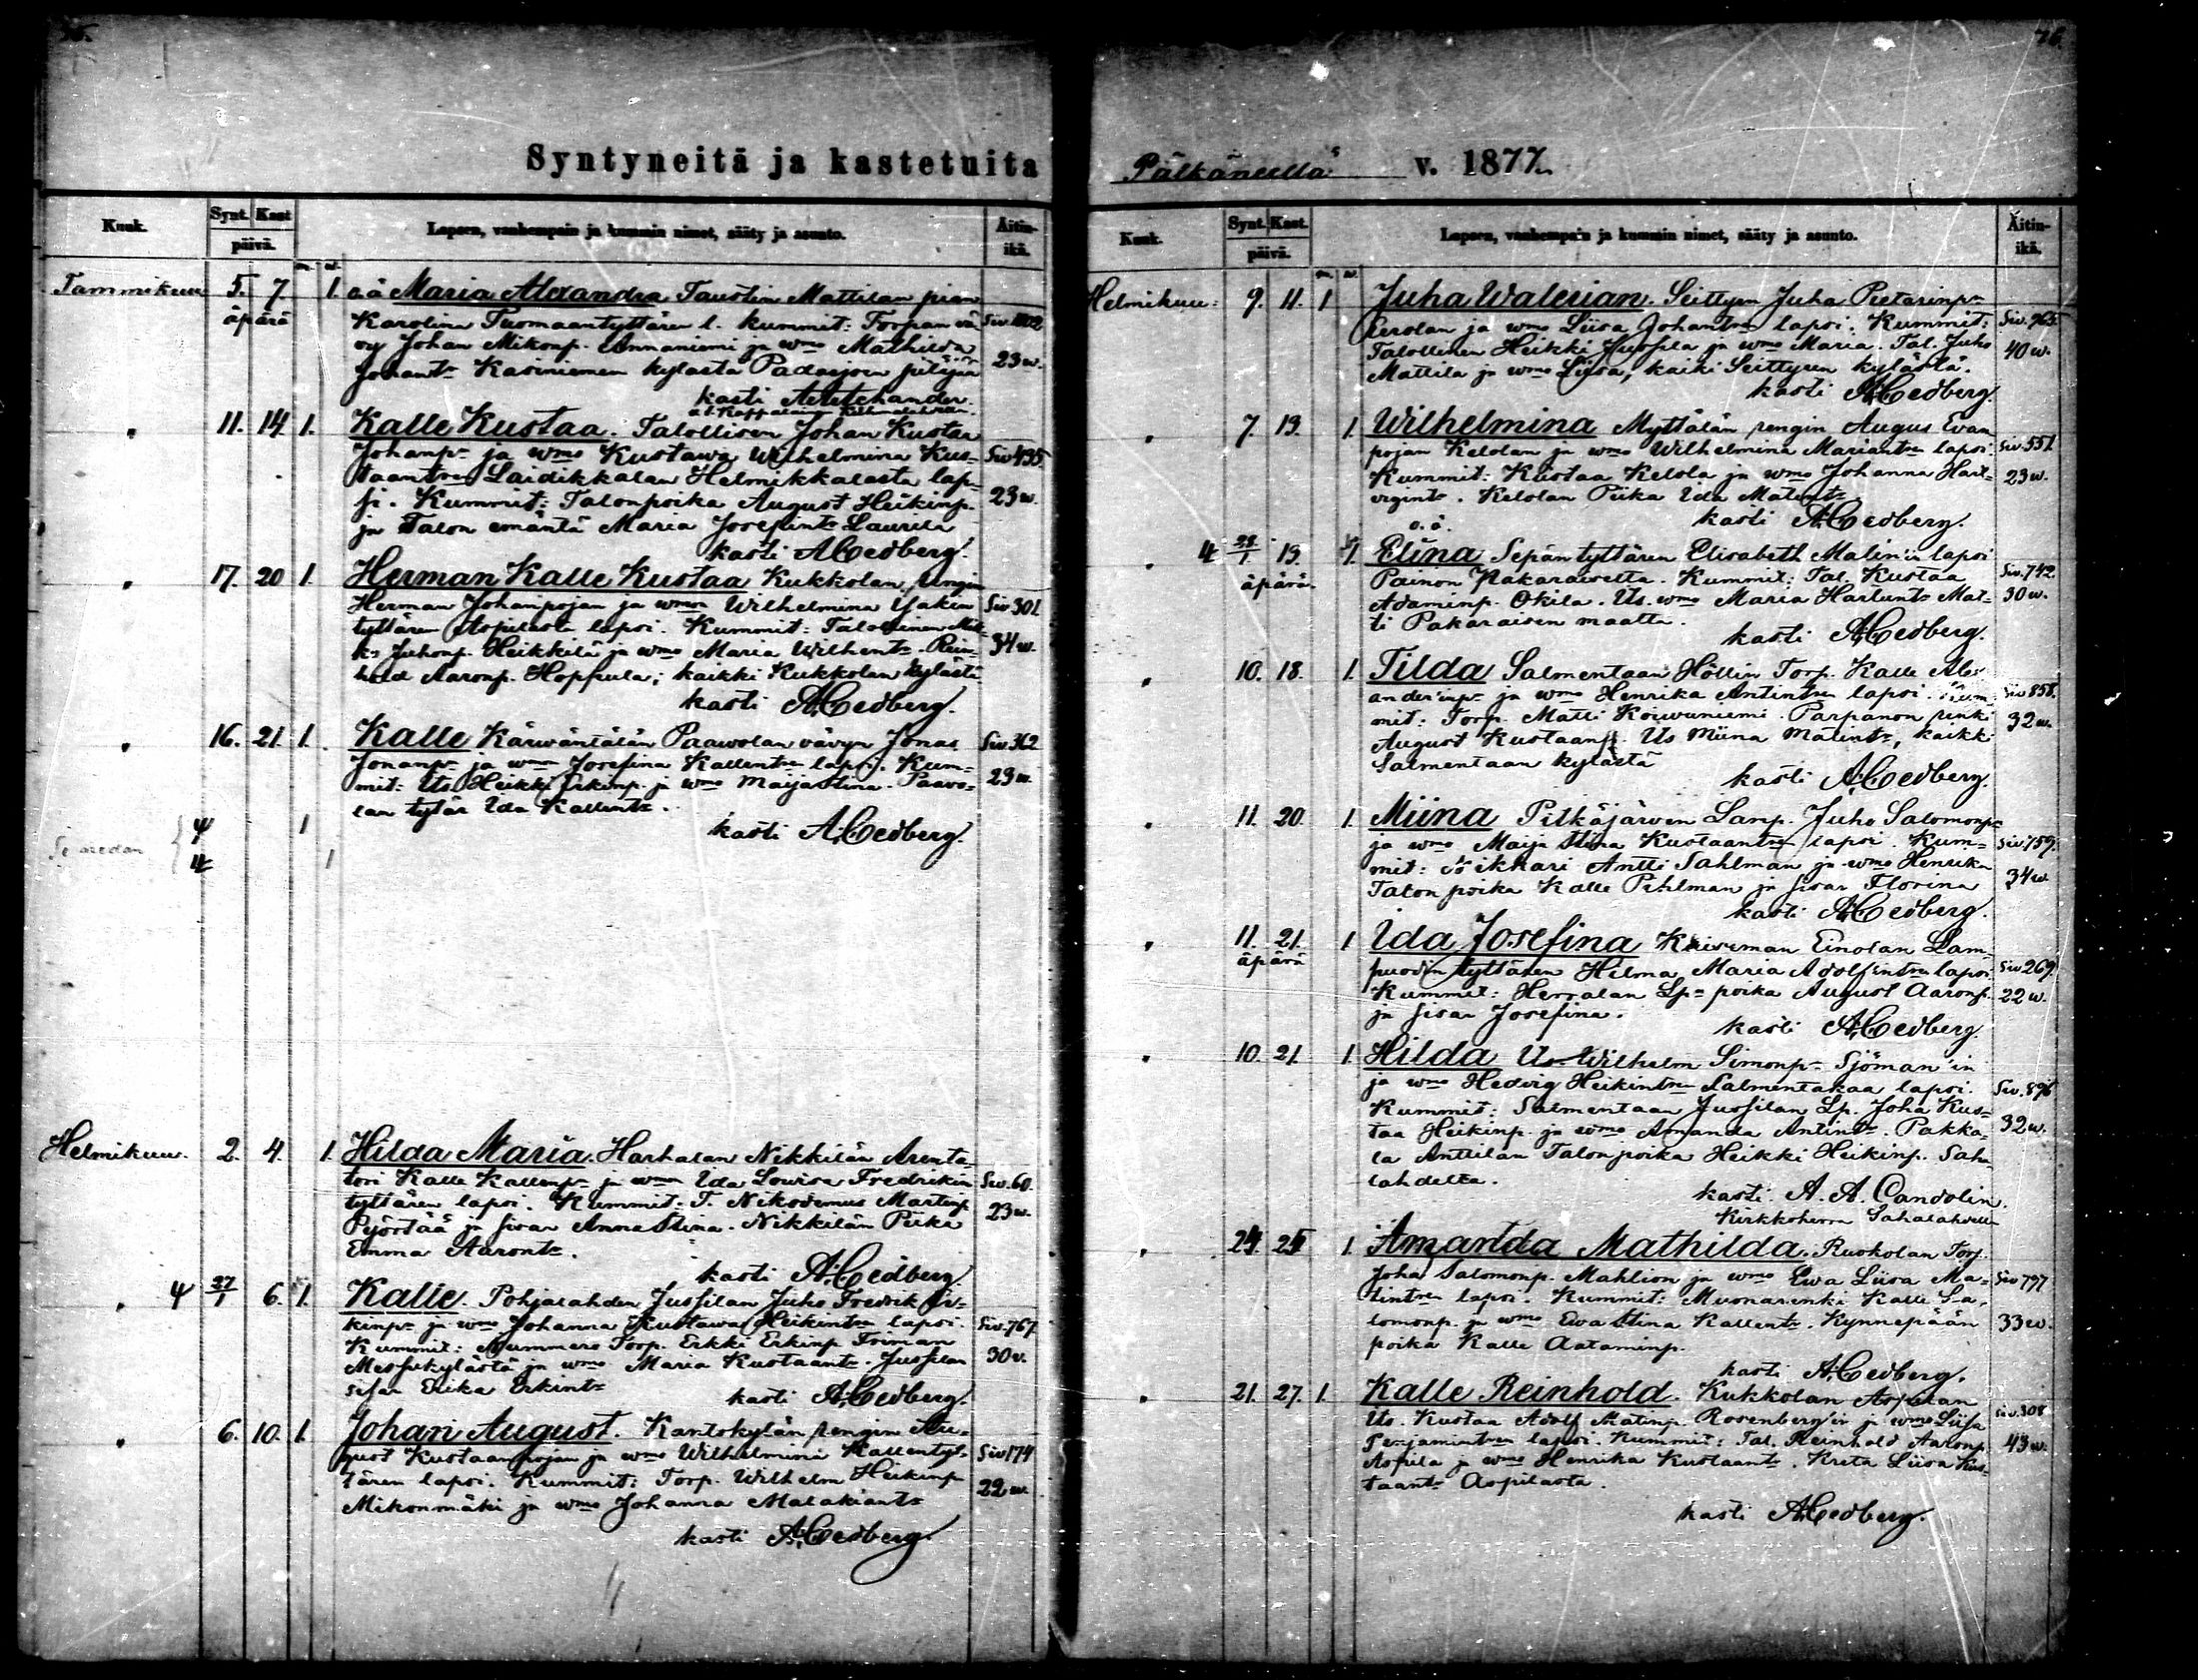 76.
Syntyneitä ja kastetuita
Kuuk. Synt. Kast päivä. Lapsen, vanhempain ja kummin nimet, sääty ja asunto. Äitin-ikä.
Tammikuu 5. 7. 1. o.ä Maria Alexandra Taustin Mattilan pian
äpärä Karolina Tuomaantyttären l. kummit: Torpan vä
oy Johan Mikonp. Annaniemi ja wmo Mathilda 23 w.
Johantr Kasiniemen kylästä Padasjoen pitäjää
kasti
11. 14 1. Kalle Kustaa. Talollisen Johan Kustaa
Johanpn ja wmo Kustawa Wilhelmina Kus- Siv 495
taantren Laidikkalan Helmikkalasta lap-
si. Kummit: Talonpoika August Heikinp. 23 w.
ja Talon emäntä Maria Josefintr Laurila
kasti A.Cedberg.
17. 20 1. Herman Kalle Kustaa Kukkolan rengin
Herman Johanpojan ja wmon Wilhelmina Isakin Siv 301.
tyttären Aspilasta lapsi. Kummit: Talollinen
Juhonp. Heikkilä ja wmo Maria Wilhemtr. Rein- 34 w.
hold Aaronp. Hopsula; kaikki Kukkolan kylästä
kasti A.Cedberg.
16. 21. 1. Kalle Kärwäntälän Paawolan vävyn Jonas Siv. 362
Jonanpn ja wmon Josefina Kallentren lapsi. Kum-
mit: Its Heikki Erkinp. ja wmo Maijastina. Paavo- 23 w.
lan tytär Ida Kallentr.
kasti A.Cedberg.
1
1
Helmikuu. 2. 4. 1. Hilda Maria. Harhalan Nikkilän Arenta-
tori Kalle Kallenpn ja wmon Ida Lowisa Fredrikin Siv. 60.
tyttären lapsi. Kummit: T. Nikodemus Martinp. 23 w.
Pejöstää ja sisar Anna Stina. Nikkilän Piika
Emma Aarontr.
kasti A.Cedberg.
27/1 6. 1. Kalle. Pohjalahden Jussilan Juho Fredrik Er-
kinpn ja wmo Johanna Kustawa Heikintren lapsi. Siv. 767
Kummit: Nummens Torp. Erkki Erkinp. Friman 30 v.
Messukylästä ja wmo Maria Kustaantr. Jussilan
sisar Erika Erkintr
kasti A.Cedberg.
6. 10. 1. Johan August. Kantokylän rengin Au-
gust Kustaanpojan ja wmo Wilhelmina Kallentyt- Siv 174
tären lapsi. Kummit: Torp. Wilhelm Heikinp. 22 w.
Mikonmäki ja wmo Johanna Malakiantr
kasti A.Cedberg.
Pälkäneellä v. 1877.
Kuuk. Synt. Kast. päivä. Lapsen, vanhempain ja kummin nimet, sääty ja asunto. Äitin-ikä.
Helmikuu. 9. 11. 1 Juha Walerian. Seittyen Juha Pietarinpn
Perolan ja wmo Liisa Johantren lapsi. Kummit: Siv. 965.
Talollinen Heikki Jussila ja wmo Maria. Tal. Juho 40 w.
Mattila ja wmo Liisa, kaiki Seittyen kylästä.
kasti A.Cedberg.
7. 13. 1. Wilhelmina Myttälän rengin Augus Evan
pojan Kelolan ja wmo Wilhelmina Mariantren lapsi. Siv. 551.
Kummit: Kustaa Kelola ja wmo Johanna Hart- 23 w.
vigintr. Kelolan Piika Ida Matintr.
kasti A.Cedberg.
o.ä.
28/1 13. 1. Elina Sepän tyttären Elisabeth Malin'in lapsi
äpärä. Painon Pakaraisetta. Kummit: Tal. Kustaa Siv. 742.
Adaminp. Okila. Its. wmo Maria Harluntr Mat- 30 w.
ti Pakaraisen maalta.
kasti A.Cedberg.
10. 18. 1. Tilda Salmentaan Höllin Torp. Kalle Alex-
ander'inpn ja wmo Henrika Antintren lapsi. Kum- Siv 858.
mit: Torp. Matti Koiwuniemi. Parpanon renki 32 w.
August Kustaanp. Its Miina Matintr, kaikki
Salmentaan kylästä
kasti A.Cedberg.
11. 20. 1. Miina Pitkäjärven Lamp. Juho Salomonpn
ja wmo Maija Stina Kustaantren lapsi. Kum- Siv. 159.
mit: Antti Sahlman ja wmo Henrika
Talon poika Kalle Pihlman ja sisar Florina 34 w.
kasti A.Cedberg.
11. 21. 1 Ida Josefina Einolan Lam-
äpärä puodin tyttären Hilma Maria Adolfintren lapsi. Siv 269.
Kummit: Herralan Lpn poika August Aaronp. 22 w.
ja sisar Josefina.
kasti A.Cedberg.
10. 21. 1 Hilda Its Wilhelm Simonpn Sjöman'in
ja wmo Hedvig Heikintren Salmentakaa lapsi. Siv. 896
Kummit: Salmentaan Jussilan Lp. Joha Kus-
taa Heikinp. ja wmo Amanda Antintr. Pakka- 32 w.
la Anttilan Talonpoika Heikki Heikinp. Saha-
lahdelta.
kasti. A. A. Candolin.
Kirkkoherra Sahalahdella
24. 25 1. Amanda Mathilda. Ruokolan Torp.
Joha Salomonp. Mahlion ja wmo Ewa Liisa Ma- Siv 797
tintren lapsi. Kummit: Muonarenki Kalle Sa-
lomonp. ja wmo Ewa Stina Kallentr. Kynnepään 33 w.
poika Kalle Aataminp.
kasti A.Cedberg.
21. 27. 1. Kalle Reinhold. Kukkolan Aspilan
Its. Kustaa Adolf Matinp. Rosenberg'in ja wmo Liisa Siv. 308
Penjamintren lapsi. Kummit: Tal. Reinhold Aaronp. 43 w.
Aspila ja wmo Henrika Kustaantr. Kreta Liisa Kus-
taantr Aspilasta.
kasti A.Cedberg.